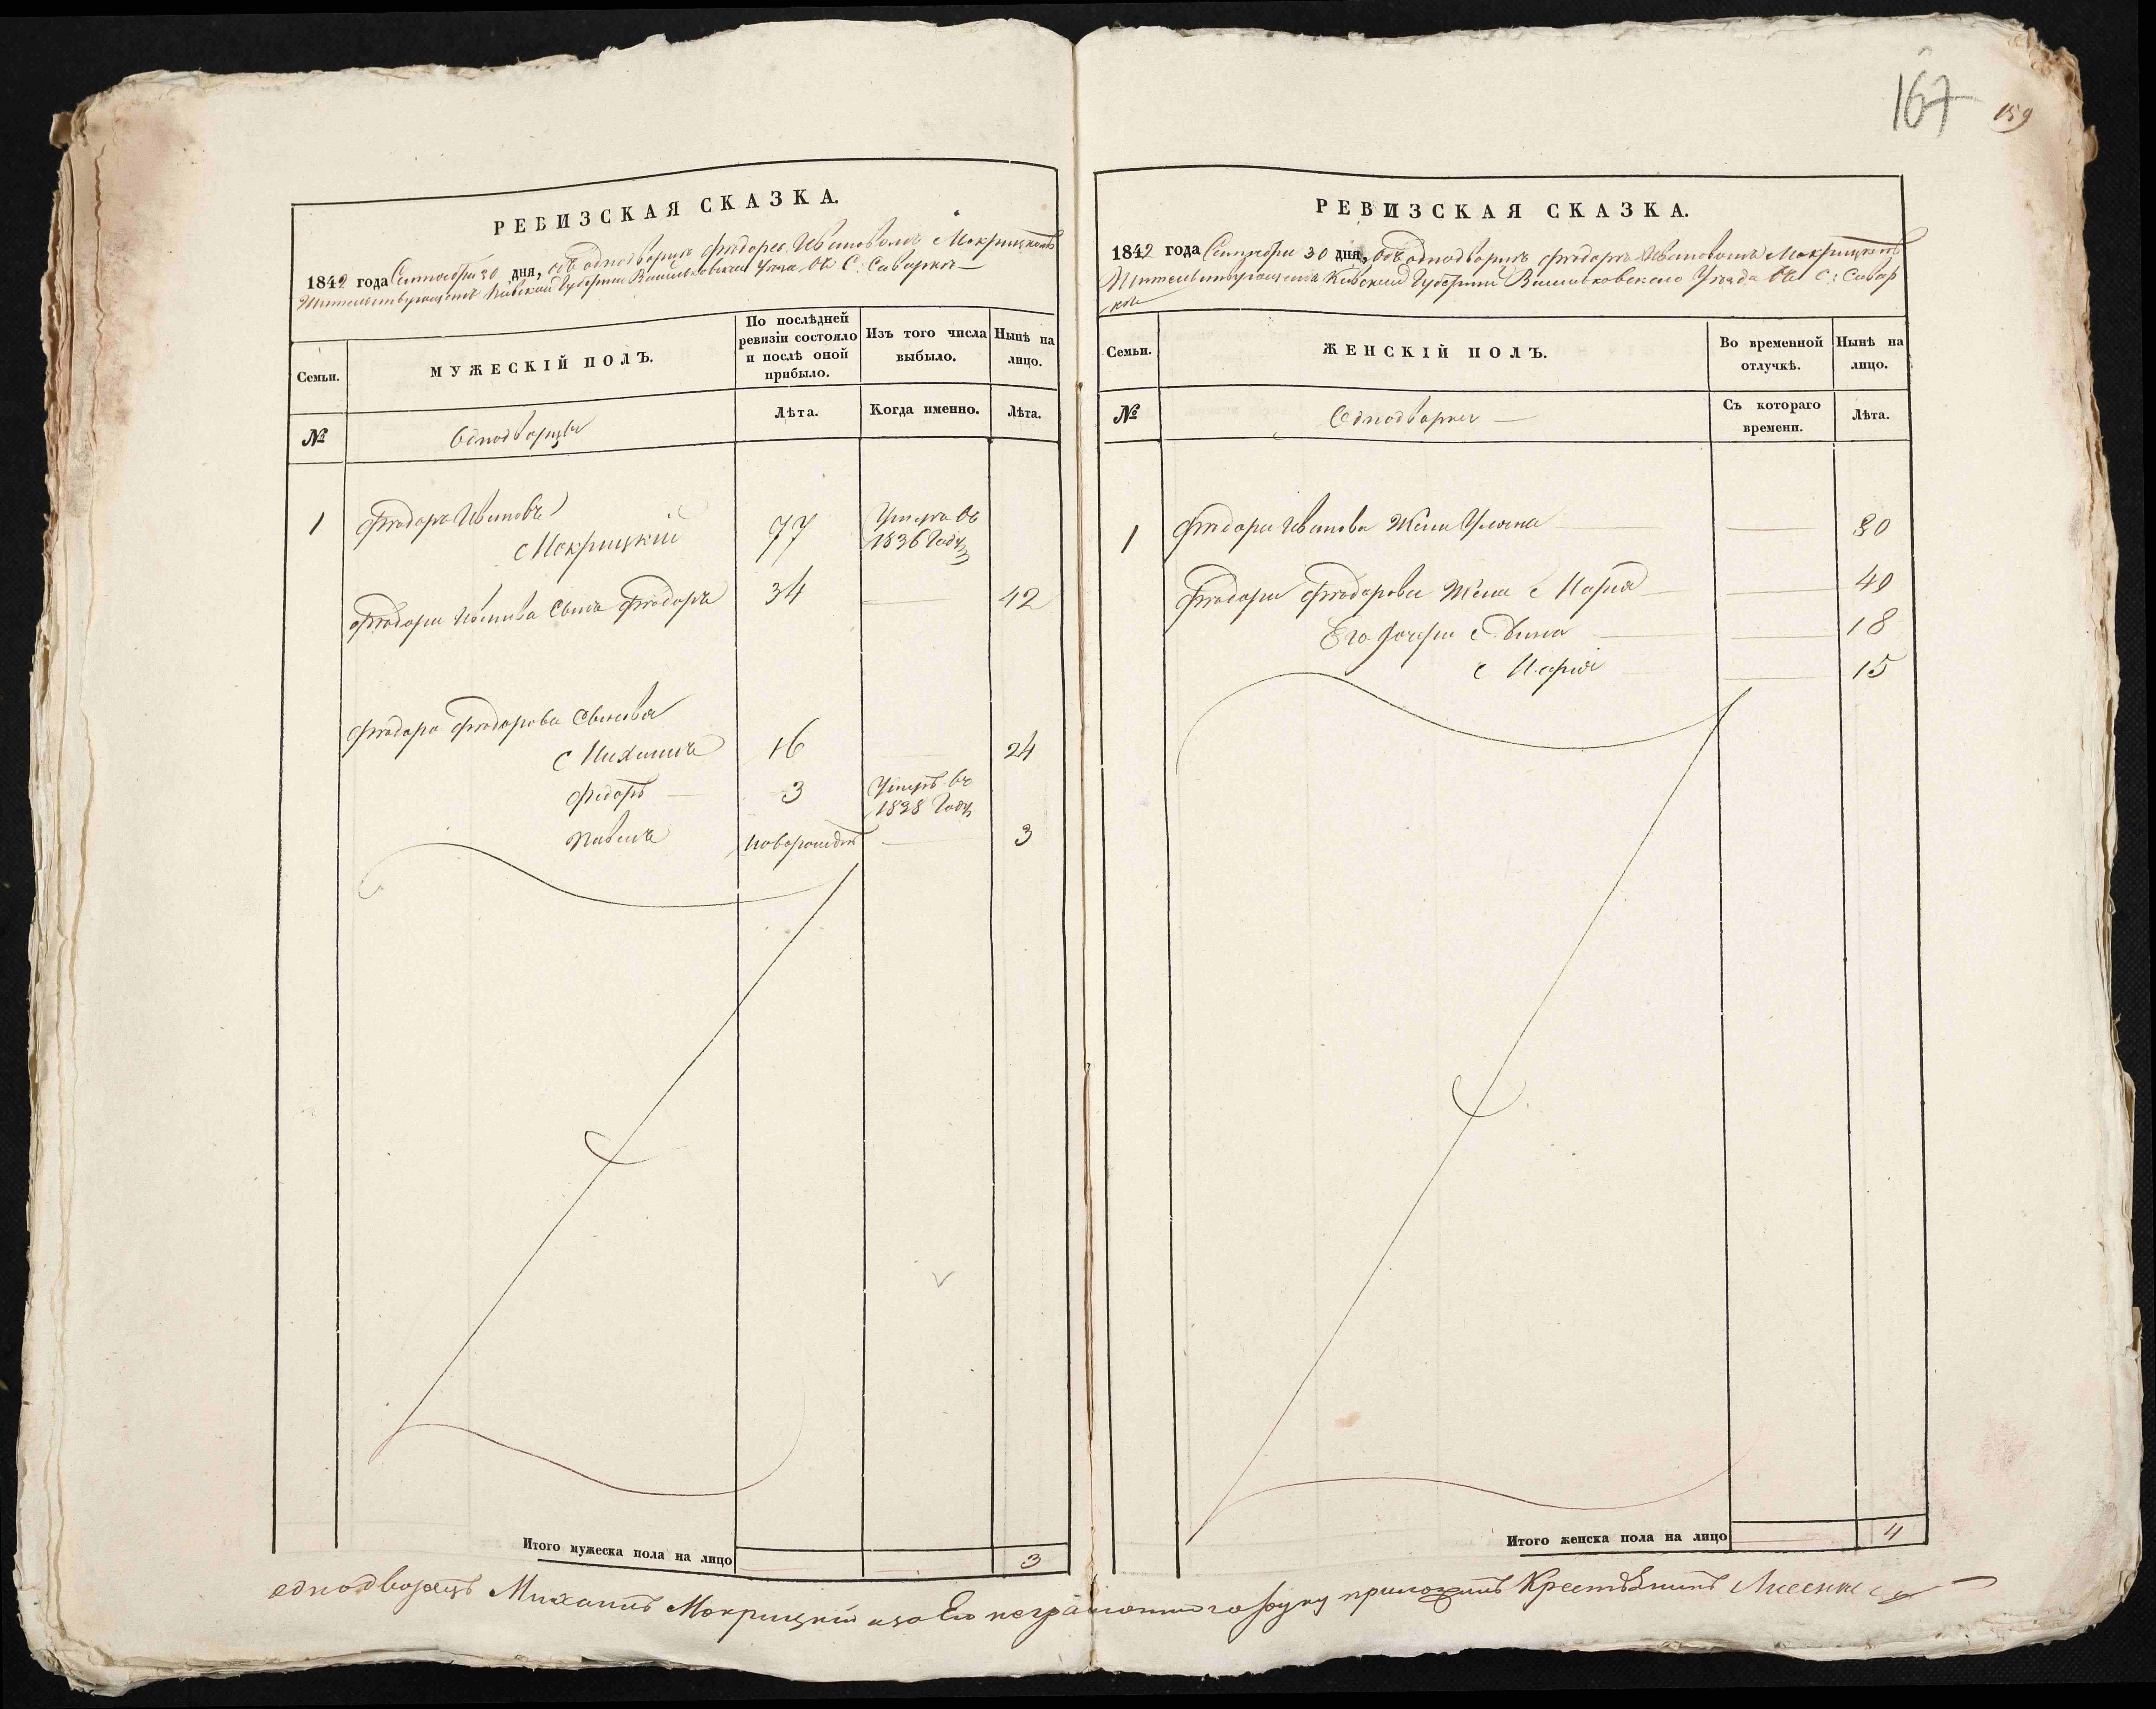 167 159
РЕВИЗСКАЯ СКАЗКА.
1842 года Сентября 30 дня, объ однодворце Ѳѣодоре Ивановомъ Мокрицкомъ
Жительствующемъ Кіевской Губерніи Васильковскаго Уезда въ С: Саварке
Семьи.
МУЖЕСКІЙ ПОЛЪ.
По послѣдней ревизіи состояло и послѣ оной прибыло.
Изъ того числа выбыло.
Нынѣ на лицо.
№
Однодворцы
Лѣта.
Когда именно.
Лѣта.
1 Ѳѣодоръ Ивановъ
Мокрицкій 77 Умеръ въ 1836 Году
Ѳѣодора Иванова Сынъ Ѳѣодоръ 34 42
Ѳѣодора Ѳѣодорова Сыновья
Михаилъ 16 24
Федоръ 3 Умеръ въ 1838 Году
Павелъ новорожден 3
Итого мужеска пола на лицо 3
РЕВИЗСКАЯ СКАЗКА.
1842 года Сентября 30 дня, объ однодворце Ѳѣодоре Ивановомъ Мокрицкомъ
Жительствующемъ Кіевской Губерніи Васильковскаго Уезда въ С: Савар
ке
Семьи.
ЖЕНСКІЙ ПОЛЪ.
Во временной отлучкѣ.
Нынѣ на лицо.
№
Однодворки
Съ котораго времени.
Лѣта.
1 Ѳѣодора Иванова Жена Ульяна 80
Ѳѣодора Ѳѣодорова Жена Марія 40
Его Дочери 18
Марія 15
Итого женска пола на лицо 4
однодворецъ Михаилъ Мокрицкій а за Его неграмотного руку приложилъ Крестьянинъ